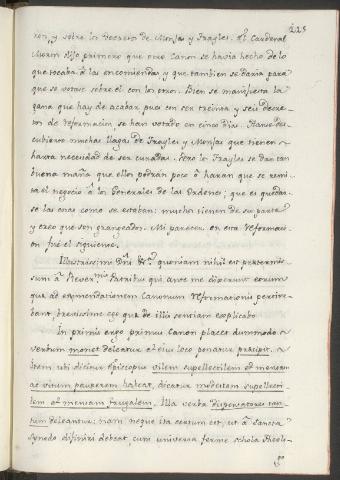 225
ron, y sobre los Decretos de Monjas y Frayles. El Cardenal
Moron dijo primero que otro Canon se havia hecho de lo
que tocaba à las encomiendas y que tambien se daria para
que se votase sobre el con los otros. Bien se manifiesta la
gana que hay de acabar pues con ser treinta y seis decre-
tos de reformacion se han votado en cinco dias. Hanse des-
cubierto muchas llagas de Frayles y Monjas que tienen
harta necesidad de ser curadas. Pero los Frayles se dan tan
buena maña que ellos podrán poco ò haran que se remi-
ta el negocio à los Generales de las Ordenes; que es quedar-
se las cosas como se estaban: muchos tienen de su parte
y creo que son grangeados. Mi parecer en esta reformaci-
on fué el siguiente.
Illustrissimi Dñi quoniam nihil est prætermis-
sum à Rever. Patribus qui ante me dixerunt eorum
quæ ad emmendationem Canonum Reformationis pertine-
bant, brevissime ego quæ de illis sentiam explicabo
In primis ergo primus Canon placet dummodo
verbum monet deleatur et ejus loco ponatur præcipit.
item ubi dicitur Episcopus vilem supellectilem et mensam
ac victum pauperem habeat, dicatur modestam supellecti-
lem et mensam frugalem. Illa verba dispensatores tan-
tum deleantur: nam neque ita certum est, ut à Sancta
Synodo difiniri debeat, cum universa ferme schola Theolo-
go